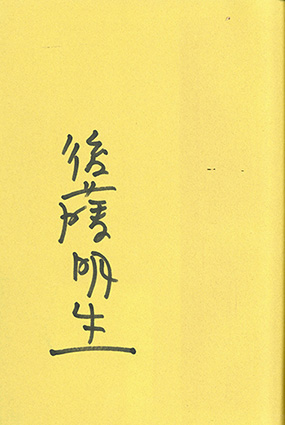 後藤明生